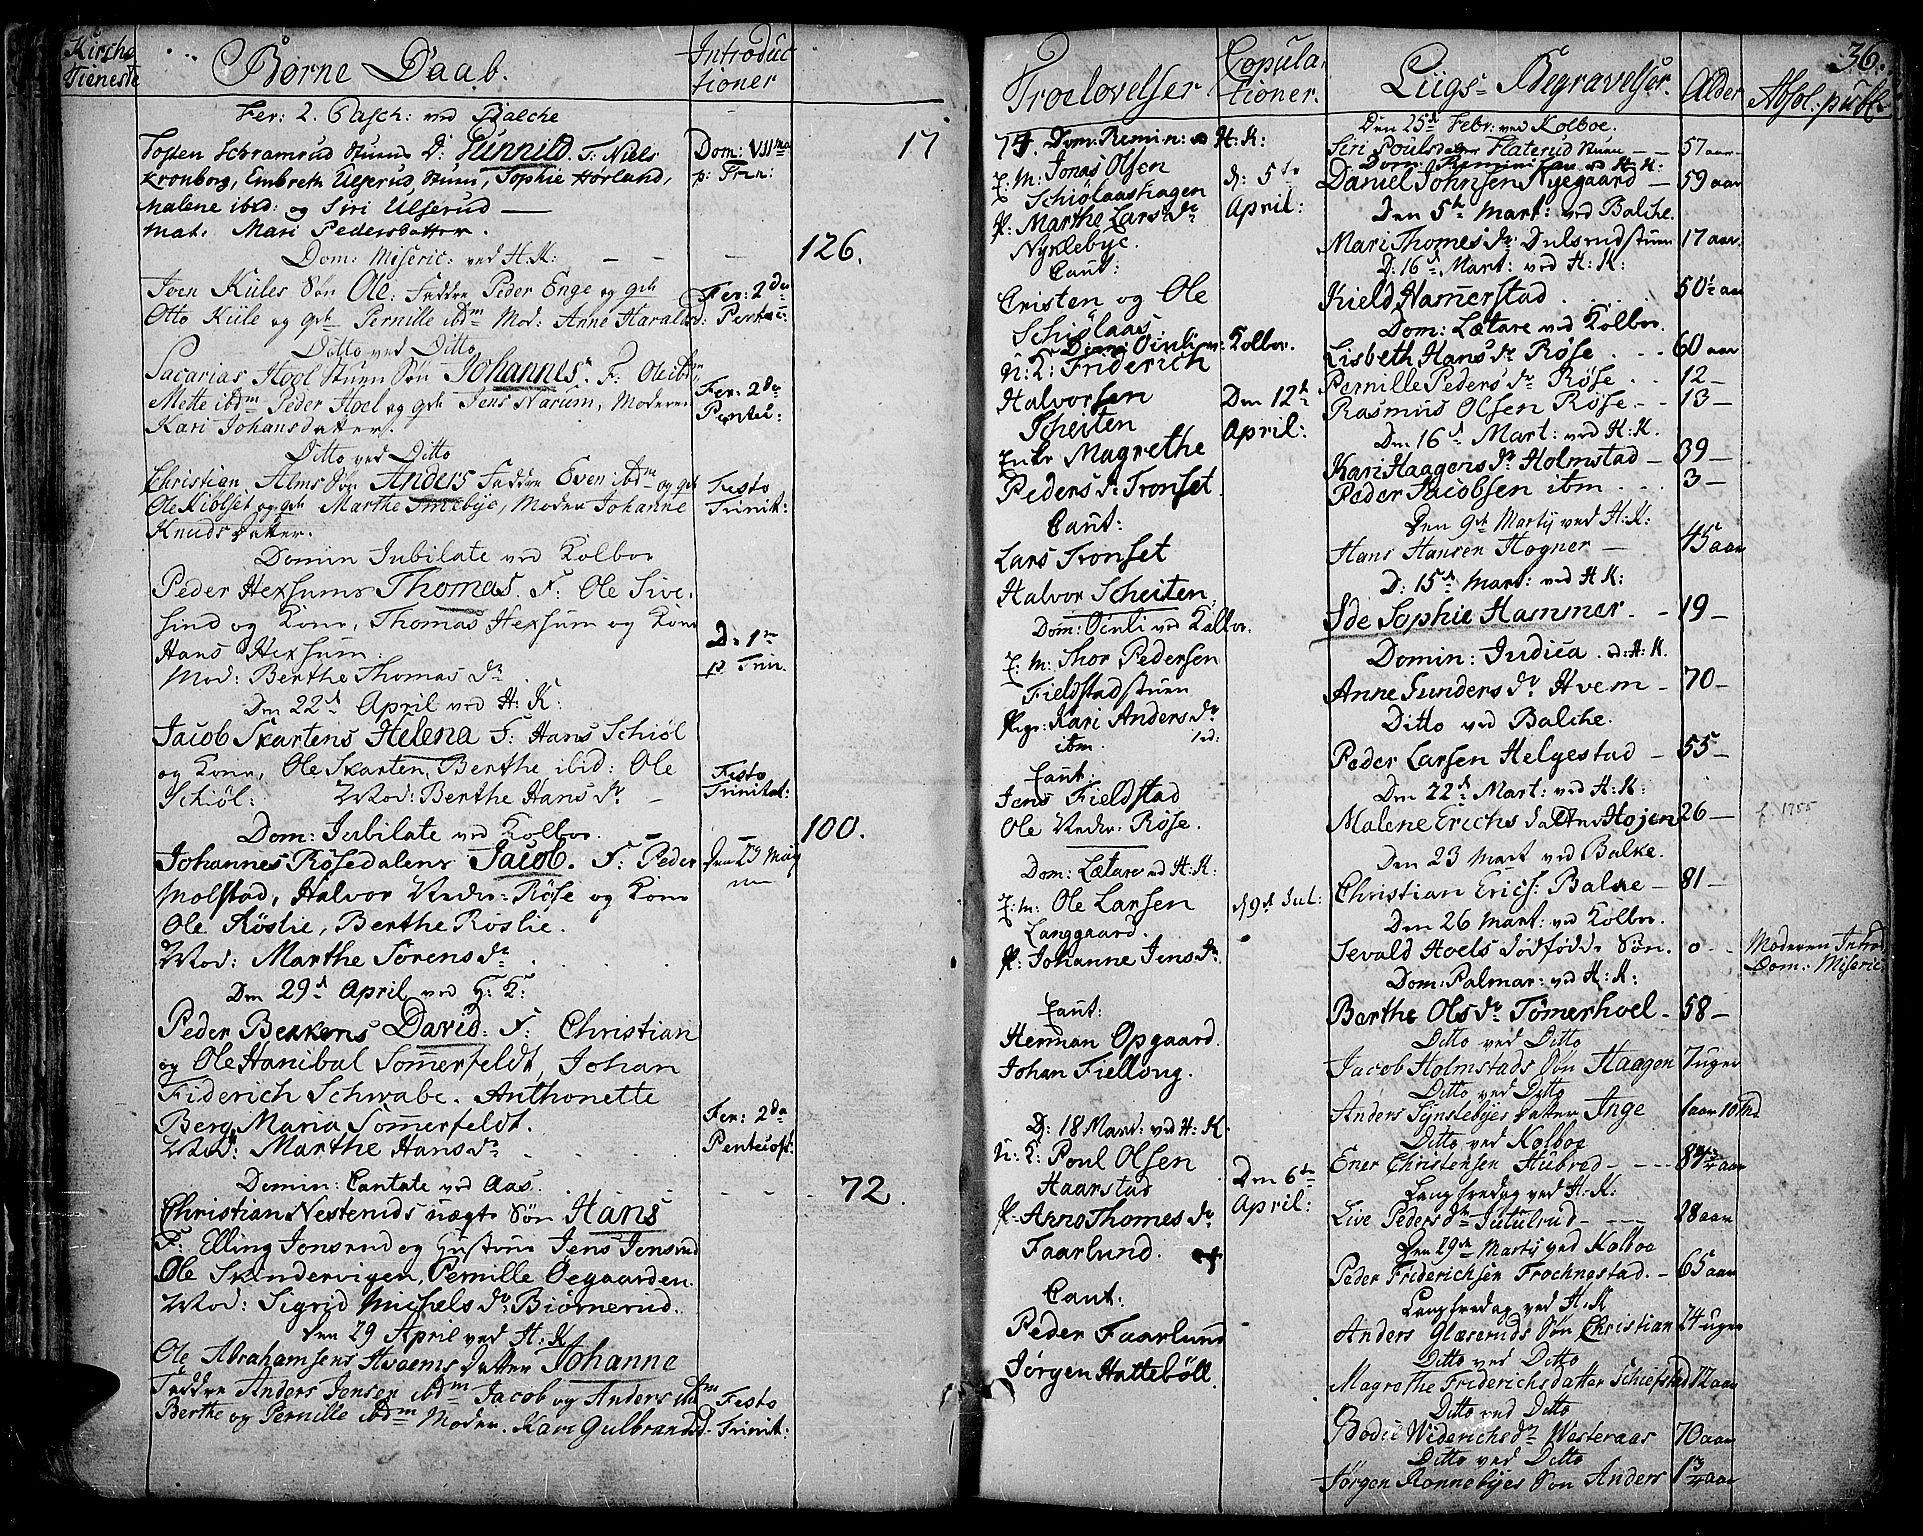 Kirche Tieneste
Børne Daab.
Introductioner
Fer: 2. Pasch: ved Balche
Tosten Schramrud Stuens D: Gunnild. F: Niels
Kronborg, Embreth Ulserud Stuen, Sophie Hørland,
Malene ibid: og Siri Ulserud
Mat. Mari Pedersdatter.
Dom: VIIma
p: Trin:
17
Dom: Miseric: ved H: K:
126.
Iven Kiiles Søn Ole: Faddre Peder Enge og
Otto Kiile og Pernille ibdm Mod: Anne Haralsd:
Fer: 2da
Pentec:
Ditto ved Ditto
Sacarias Hoel Stuen Søn Johannes. F. Ole ibm,
Mette ibdm Peder Hoel og Jens Narum, Moderen
Kari Johansdatter.
Fer: 2da
Pentec:
Ditto ved Ditto
Christian Alms Søn Anders Faddre Even ibdm og
Ole Kiølset og Marthe Smebye, Moder Johanne
Knudsdatter.
Festo
Trinit:
Domin Jubilate ved Kolboe
Peder Hexsums Thomas. F: Ole Sive-
sind og Kone, Thomas Hexsum og Kone
Hans Hexsum.
Mod: Berthe Thomas dr
D: 1te
p Trin.
Den 22d April ved H: K:
Jacob Skartens Helena F: Hans Schiøl
og Kone, Ole Skarten, Berthe ibid: Ole
Schiøl: Mod: Berthe Hans dr
Festo
Trinitat:
Dom: Jubilate ved Kolboe.
100.
Johannes Røsedalens Jacob. F: Peder
Molstad, Halvor Nedre Røse og Kone
Ole Røslie, Berthe Røslie.
Mod: Marthe Sørens dr
Den 23 May
Den 29d April ved H: K:
Peder Bekkens David: F: Christian
og Ole Hanibal Sommerfeldt, Johan
Fiderich Schwabe. Anthonette
Berg, Maria Sommerfeldt.
Mod: Marthe Hans dr
Fer: 2da
Pentecost:
Domin: Cantate ved Aas.
72.
Christian Nesteruds uægte Søn Hans
F: Elling Jensrud og Hustrue Jens Jensrud
Ole Skindervigen, Pernille Øegaarden.
Mod: Sigrid Michels dr Biørnerud.
Den 29 April ved H: K
Ole Abrahamsens Hvæms Datter Johanne
Faddre Anders Jensen ibdm Jacob og Anders ibm
Berthe og Pernille ibdm Moder. Kari Gulbrandsd.
Festo
Trinit:
Trolovelser
Copulationer.
74. Dom: Remin: H: K:
Jonas Olsen
Schiølaashagen
P: Marthe Lars dr
Nyrlebye.
d: 5te
April:
Caut:
Cristen og Ole
Schiølaas
Oculi Kolboe.
U: K: Friderich
Halvorsen
Scheiten
Enke Magrethe
Peders dr Tronset.
Den 12te
April:
Caut:
Lars Tronset
Halvor Scheiten.
Dom: Oculi ved Kolboe.
Thor Pedersen
Fieldstadstuen
Pige: Kari Anders dr
ibm.
Caut:
Jens Fieldstad
Ole Nedre: Røse.
Dom: Lætare ved H: K:
Ole Larsen
Langgaard.
P: Johanne Jens dr
d 9d Jul:
Caut:
Herman Opgaard.
Johan Fiellong.
D: 18 Mart: ved H: K.
U: K: Poul Olsen
Haarstad
P: Arne Thomes dr
Faarlund.
Den 6te
April:
Caut:
Peder Faarlund
Jørgen Hattebøll.
36.
Liigs-Begravelser.
Alder
Absol: publ:
Den 25d Febr: ved Kolboe.
Siri Poulsdatter Flaterud Stuen 57 aar
Dom: Reminiscere ved H: K:
Daniel Johnsen Nyegaard 59 aar
Den 5te Mart: ved Balche.
Mari Thomes dr Dulsrudstuen 17 aar.
D: 16d Mart: ved H: K:
Kield Hammerstad 50½ aar
Dom: Lætare ved Kolboe.
Lisbeth Hans dr Røse 60 aar
Pernille Peders dr Røse 12
Rasmus Olsen Røse 13
Den 16d Mart: ved H: K.
Kari Haagens dr Holmstad 39
Peder Jacobsen ibm 3
Den 9de Martij ved H: K:
Hans Hansen Hogner 45 aar
D: 15d Mart: ved H: K:
Ide Sophie Hammer 19
Domin: Judica. H: K.
Anne Gunders dr Hvem 70
Ditto ved Balche.
Peder Larsen Helgestad 55
Den 22d Mart: ved H: K:
Malene Erichs datter Højen 26
f. 1755
Den 23 Mart ved Balke.
Christian Erics: Balke 81
Den 26 Mart: ved Kolboe.
Sevald Hoels dødfødde Søn. 0
Moderen Introd
Dom: Miseric:
Dom: Palmar: ved H: K:
Berthe Ols dr Tømerhoel 58
Ditto ved Ditto
Jacob Holmstads Søn Haagen 7 uger
Ditto ved Ditto
Anders Synslebyes datter Inge 1 aar 10 Md
Ditto ved Kolboe
Ener Christensen Hubred aar
Langfredag ved H: K:
Live Peders dr Jutulrud 28 aar
Den 29de Martij ved Kolboe
Peder Friderichsen Trochnestad. 65 aar
Langfredag ved H: K
Anders Glæseruds Søn Christian 24 uger
Ditto ved Ditto
Magrethe Friderichsdatter Schiefstad 72 aar
Ditto ved Ditto
Bodil Widerichs dr Westeraas 70 aar
Ditto ved Ditto
Jørgen Ronnebyes Søn Anders 1¾ aar